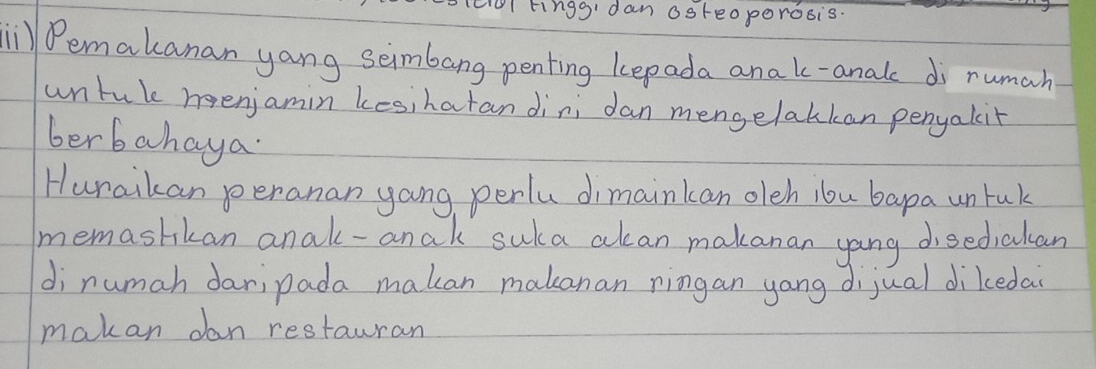 tinggi dan osteoporosis.
iii) Pemakanan yang seimbang penting kepada anak-anak di rumah
untuk menjamin kesihatan diri dan mengelakkan penyakit
berbahaya.
Huraikan peranan yang perlu dimainkan oleh ibu bapa untuk
memastikan anak-anak suka akan makanan yang disediakan
di rumah daripada makan makanan ringan yang dijual di kedai
makan dan restauran